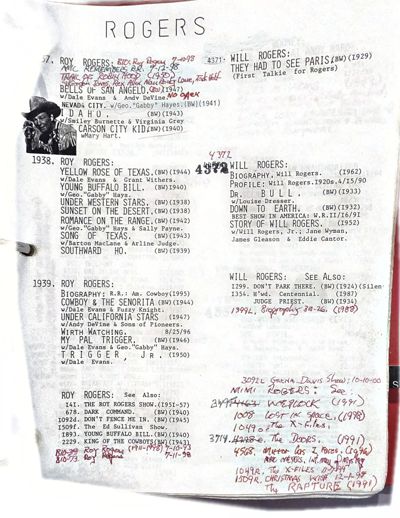 ROGERS
37. ROY ROGERS:
AMC REMEMBERS BR. 9-12-98
BELLS OF SAN ANGELO (BW)(1947)
w/Dale Evans & Andy Devine.
NEVADA CITY. w/Geo."Gabby" Hayes.(BW)(1941)
IDAHO. (BW)(1943)
w/Smiley Burnette & Virginia Grey
CARSON CITY KID.(BW)(1940)
w/Mary Hart.
1938. ROY ROGERS:
YELLOW ROSE OF TEXAS.(BW)(1944)
w/Dale Evans & Grant Withers.
YOUNG BUFFALO BILL. (BW)(1940)
w/Geo."Gabby" Hays.
UNDER WESTERN STARS. (BW)(1938)
SUNSET ON THE DESERT.(BW)(1938)
ROMANCE ON THE RANGE.(BW)(1942)
w/Geo."Gabby" Hays & Sally Payne.
SONG OF TEXAS. (BW)(1943)
w/Barton MacLane & Arline Judge.
SOUTHWARD HO. (BW)(1939)
1939. ROY ROGERS:
BIOGRAPHY: R.R.: Am. Cowboy(1995)
COWBOY & THE SENORITA (BW)(1944)
w/Dale Evans & Fuzzy Knight.
UNDER CALIFORNIA STARS (1947)
w/Andy DeVine & Sons of Pioneers.
WIRTH WATCHING. 8/25/96
MY PAL TRIGGER. (BW)(1946)
w/Dale Evans & Geo."Gabby" Hays.
TRIGGER, Jr. (1950)
w/Dale Evans.
ROY ROGERS: See Also:
141. THE ROY ROGERS SHOW.(1951-57)
678. DARK COMMAND. (BW)(1940)
1092d. DON'T FENCE ME IN. (BW)(1945)
1509f. The Ed Sullivan Show.
1893. YOUNG BUFFALO BILL.(BW)(1940)
2229. KING OF THE COWBOYS(BW)(1943)
810-39 Roy Rogers (1911-1998) 7-10-93
810-73. Roy Rogers 7-11-98
4371. WILL ROGERS:
THEY HAD TO SEE PARIS.(BW)(1929)
(First Talkie for Rogers)
4372
4372 WILL ROGERS:
BIOGRAPHY, Will Rogers. (1962)
PROFILE: Will Rogers.1920s.4/15/90
DR. BULL. (BW)(1933)
w/Louise Dresser.
DOWN TO EARTH. (BW)(1932)
BEST SHOW IN AMERICA: W.R.11/16/91
STORY OF WILL ROGERS. (1952)
w/Will Rogers, Jr.; Jane Wyman,
James Gleason & Eddie Cantor.
WILL ROGERS: See Also:
1299. DON'T PARK THERE. (BW)(1924)(Silen
1354. H'wd. Centennial. (1987)
JUDGE PRIEST. (BW)(1934)
1994L. Biography 30-26. (1988)
3092L Geena Davis Show: 10-10-00
MIMI ROGERS: See
WEDLOCK (1991)
1008 LOST IN SPACE. (1998)
1049o. The X-Files.
3719. The DOORS. (1991)
1049R. The X-FILES
1509R. CHRISTMAS WITH 12-1-98
The RAPTURE (1991)